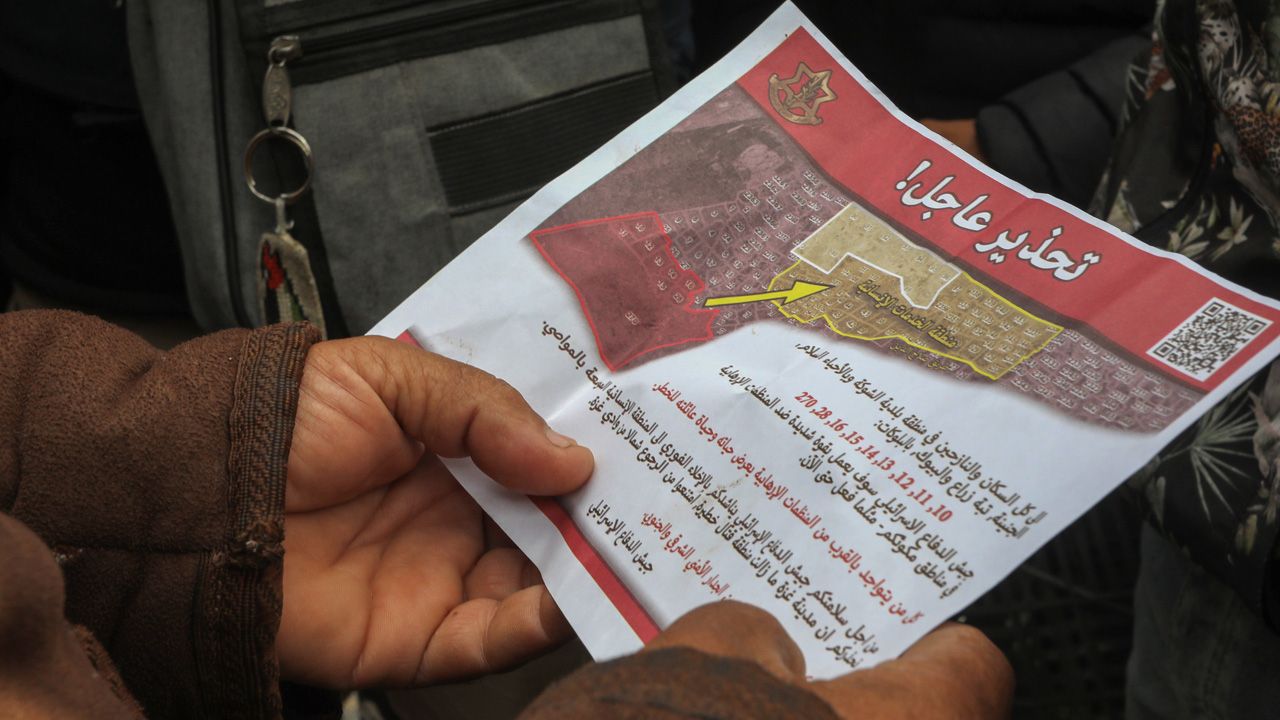 تحذير عاجل!
منطقة الخدمات الإنسانية
الى كل السكان والنازحين في منطقة بلدية الشوكة وبالأحياء السلام،
الجنينة، تبة زراع والبيوك، بالبلوكات:
10, 11, 12, 13, 14, 15, 16, 28, 270
جيش الدفاع الإسرائيلي سوف يعمل بقوة شديدة ضد المنظمات الإرهابية
في مناطق مكوثكم مثلما فعل حتى الآن.
كل من يتواجد بالقرب من المنظمات الإرهابية يعرض حياته وحياة عائلته للخطر.
من اجل سلامتكم جيش الدفاع الإسرائيلي يناشدكم بالإخلاء الفوري الى المنطقة الإنسانية الموسعة بالمواصي.
نحذركم ان مدينة غزة ما زالت منطقة قتال خطيرة، امتنعوا من الرجوع شمالا من وادي غزة
الجدار الأمني الشرقي والجنوبي.
جيش الدفاع الإسرائيلي